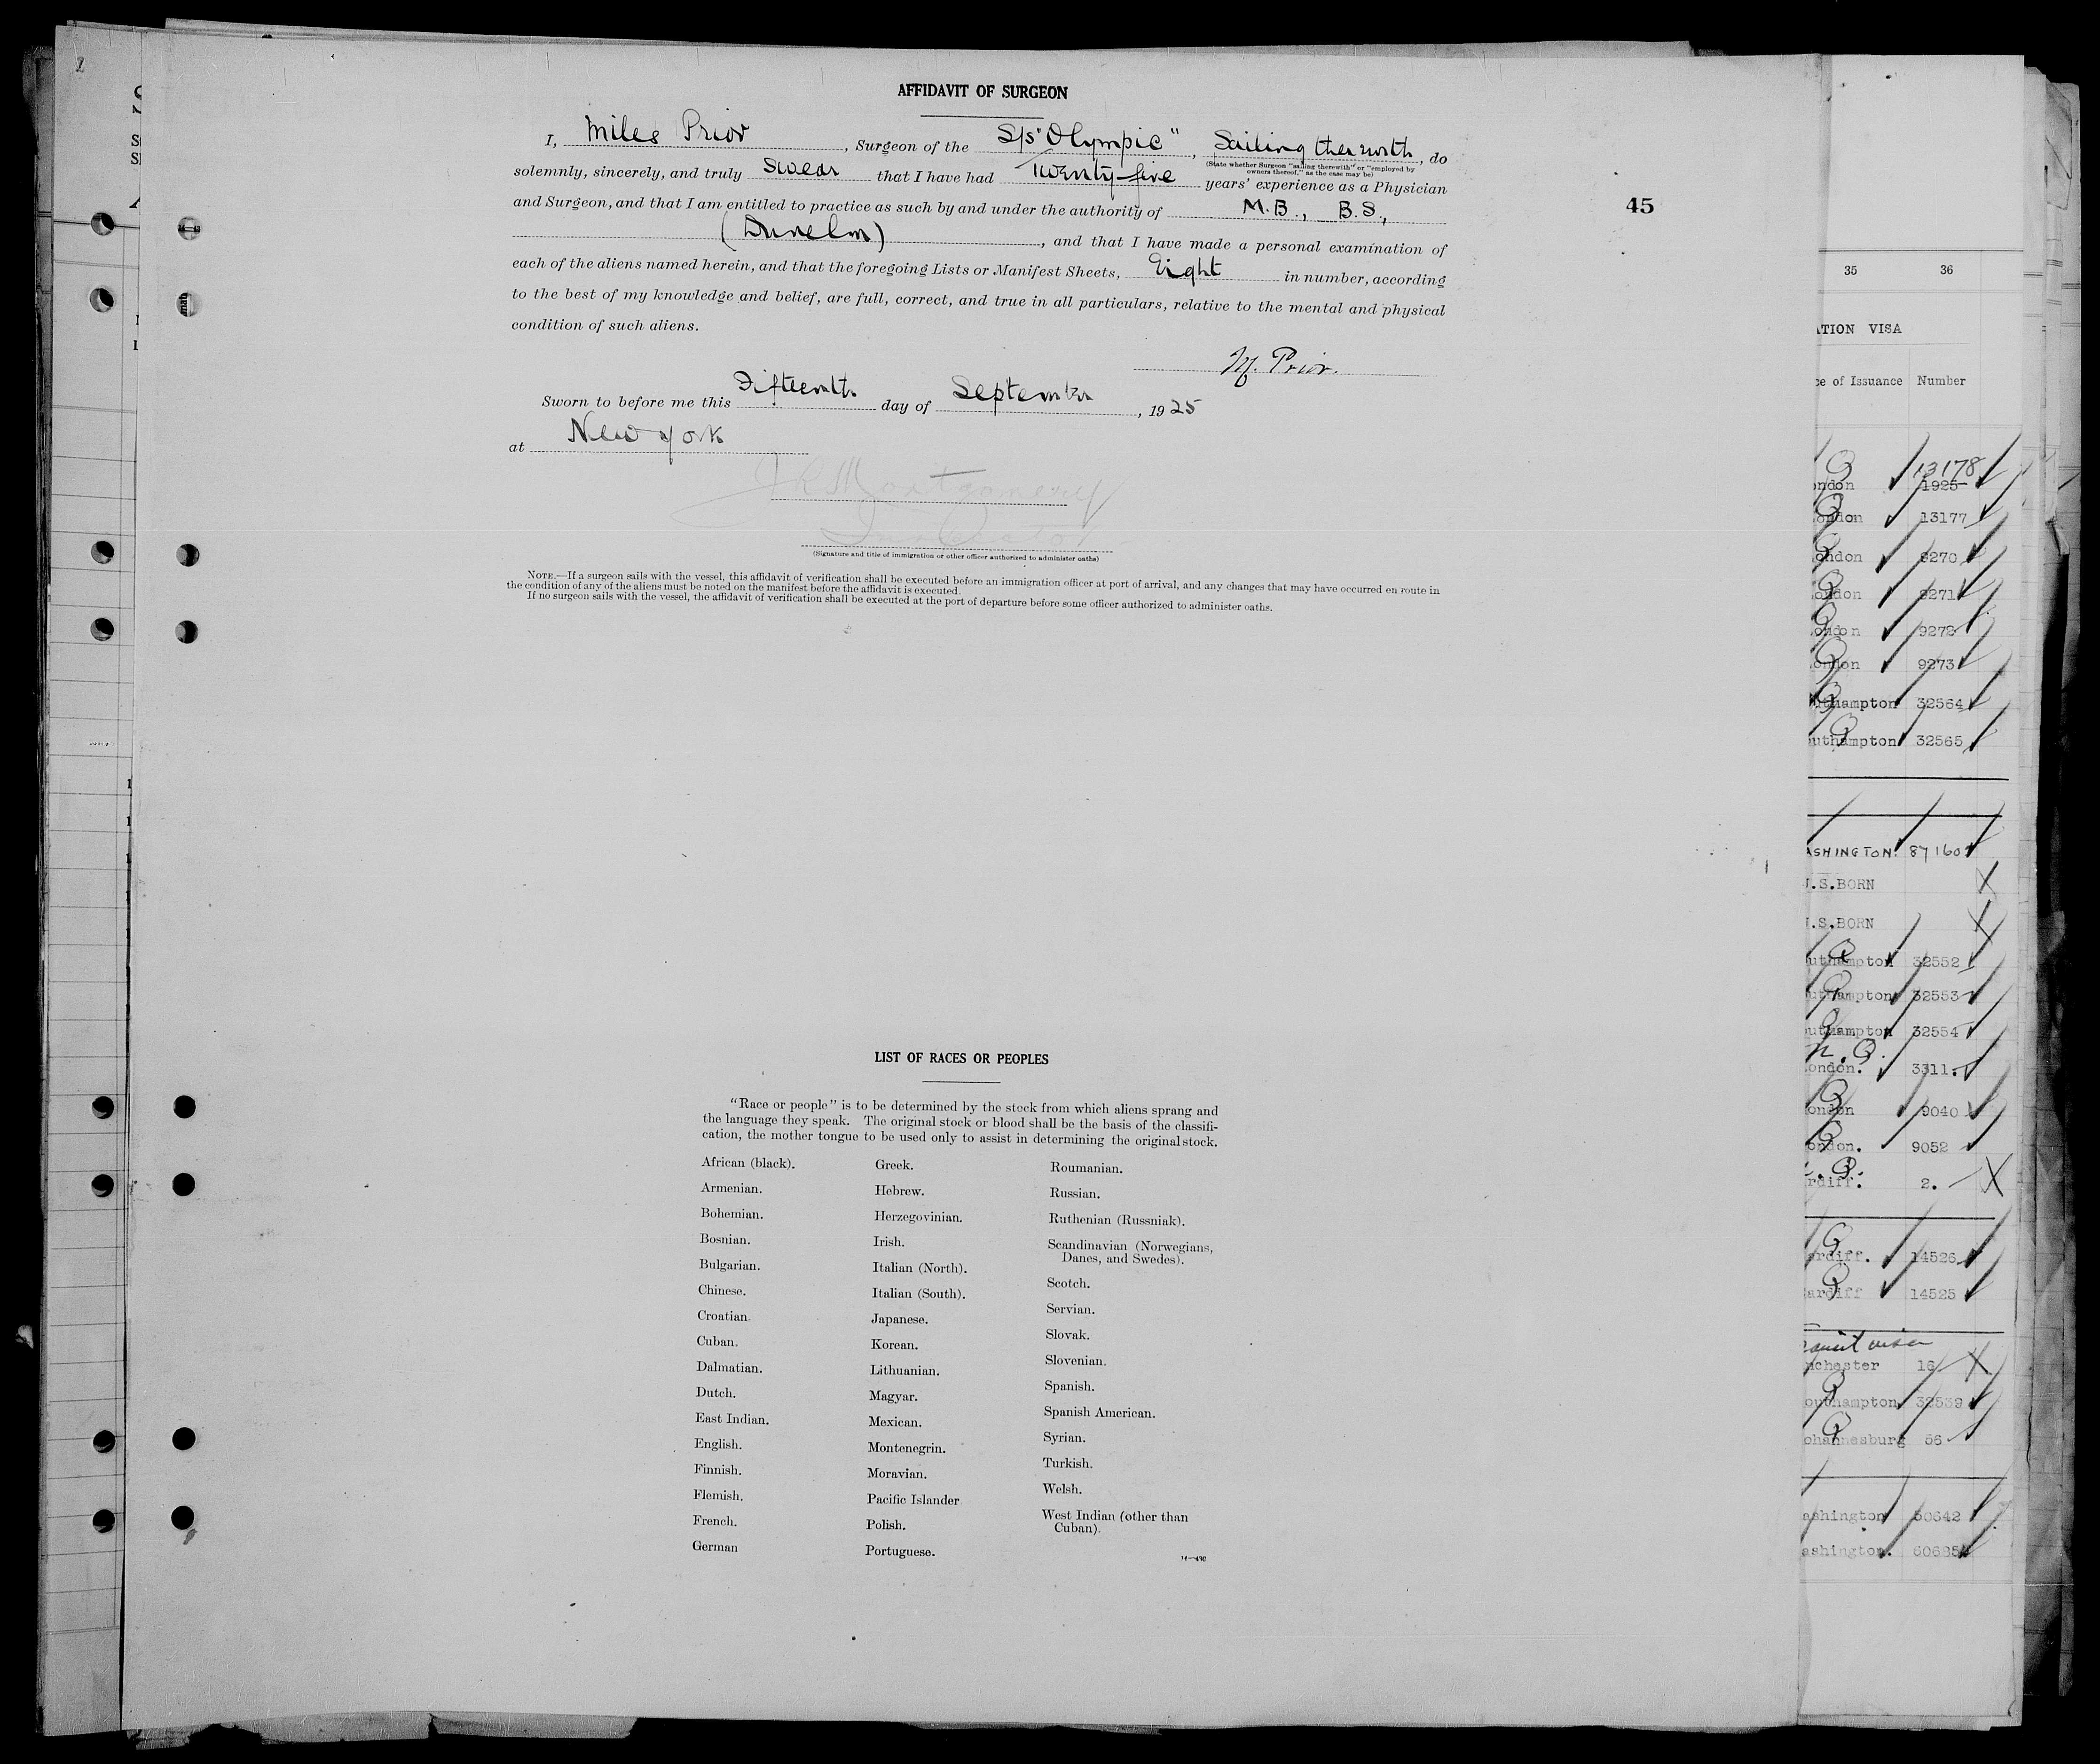 AFFIDAVIT OF SURGEON
I, Miles Prior, Surgeon of the S/S "Olympic", Sailing therewith, do
(State whether Surgeon "sailing therewith" or "employed by
owners thereof," as the case may be)
solemnly, sincerely, and truly swear that I have had Twenty-five years' experience as a Physician
and Surgeon, and that I am entitled to practice as such by and under the authority of M.B., B.S.,
(Dunelm), and that I have made a personal examination of
each of the aliens named herein, and that the foregoing Lists or Manifest Sheets, Eight in number, according
to the best of my knowledge and belief, are full, correct, and true in all particulars, relative to the mental and physical
condition of such aliens.
M. Prior.
Sworn to before me this Fifteenth day of September, 1925
at New York
J R Montgomery
(Signature and title of immigration or other officer authorized to administer oaths)
NOTE.—If a surgeon sails with the vessel, this affidavit of verification shall be executed before an immigration officer at port of arrival, and any changes that may have occurred en route in
the condition of any of the aliens must be noted on the manifest before the affidavit is executed.
If no surgeon sails with the vessel, the affidavit of verification shall be executed at the port of departure before some officer authorized to administer oaths.
45
LIST OF RACES OR PEOPLES
"Race or people" is to be determined by the stock from which aliens sprang and
the language they speak. The original stock or blood shall be the basis of the classifi-
cation, the mother tongue to be used only to assist in determining the original stock.
African (black).
Armenian.
Bohemian.
Bosnian.
Bulgarian.
Chinese.
Croatian.
Cuban.
Dalmatian.
Dutch.
East Indian.
English.
Finnish.
Flemish.
French.
German
Greek.
Hebrew.
Herzegovinian.
Irish.
Italian (North).
Italian (South).
Japanese.
Korean.
Lithuanian.
Magyar.
Mexican.
Montenegrin.
Moravian.
Pacific Islander
Polish.
Portuguese.
Roumanian.
Russian.
Ruthenian (Russniak).
Scandinavian (Norwegians,
Danes, and Swedes).
Scotch.
Servian.
Slovak.
Slovenian.
Spanish.
Spanish American.
Syrian.
Turkish.
Welsh.
West Indian (other than
Cuban).
35 36
TION VISA
ce of Issuance Number
13178
ondon 1925
ondon 13177
ondon 9270
ondon 9271
ondon 9272
ondon 9273
uthampton 32564
uthampton 32565
ASHINGTON. 87160
U.S.BORN
U.S.BORN
uthampton 32552
uthampton 32553
uthampton 32554
ondon. 3311.
ondon 9040
ondon. 9052
rdiff. 2.
ardiff. 14526
ardiff 14525
ransit visa
nchester 16
outhampton 32539
ohannesburg 56
ashington 50642
ashington. 60685